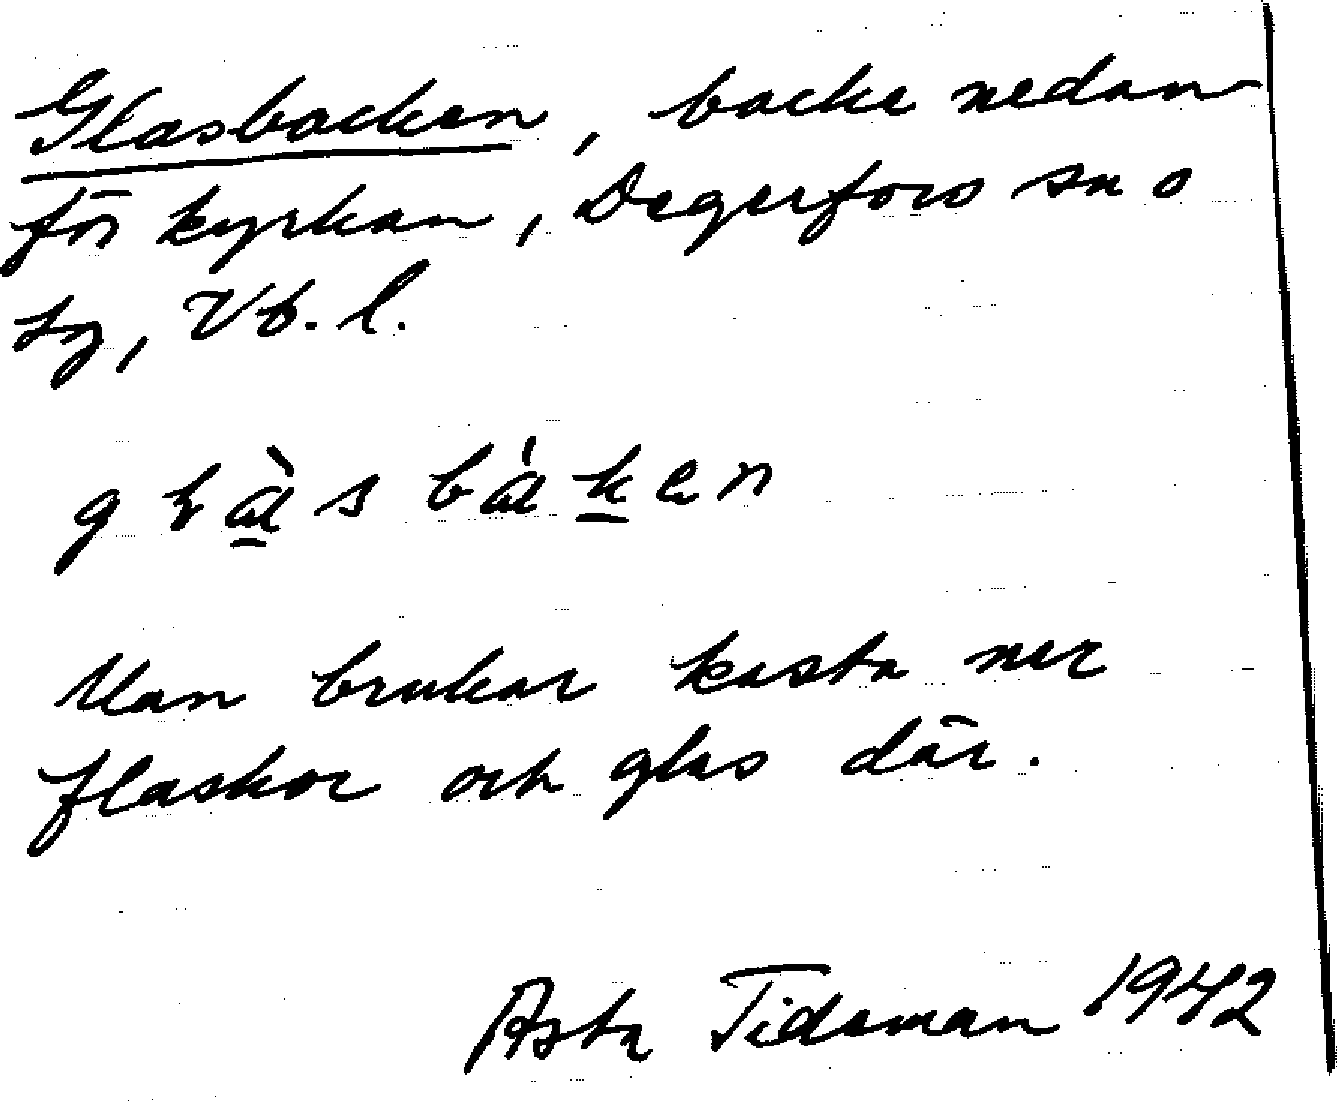 Glasbacken, backe nedan
för kyrkan, Degerfors sn o
sg, Vb. l.
Man brukar kasta ner
flaskor och glas där.
Asta Tideman 1942